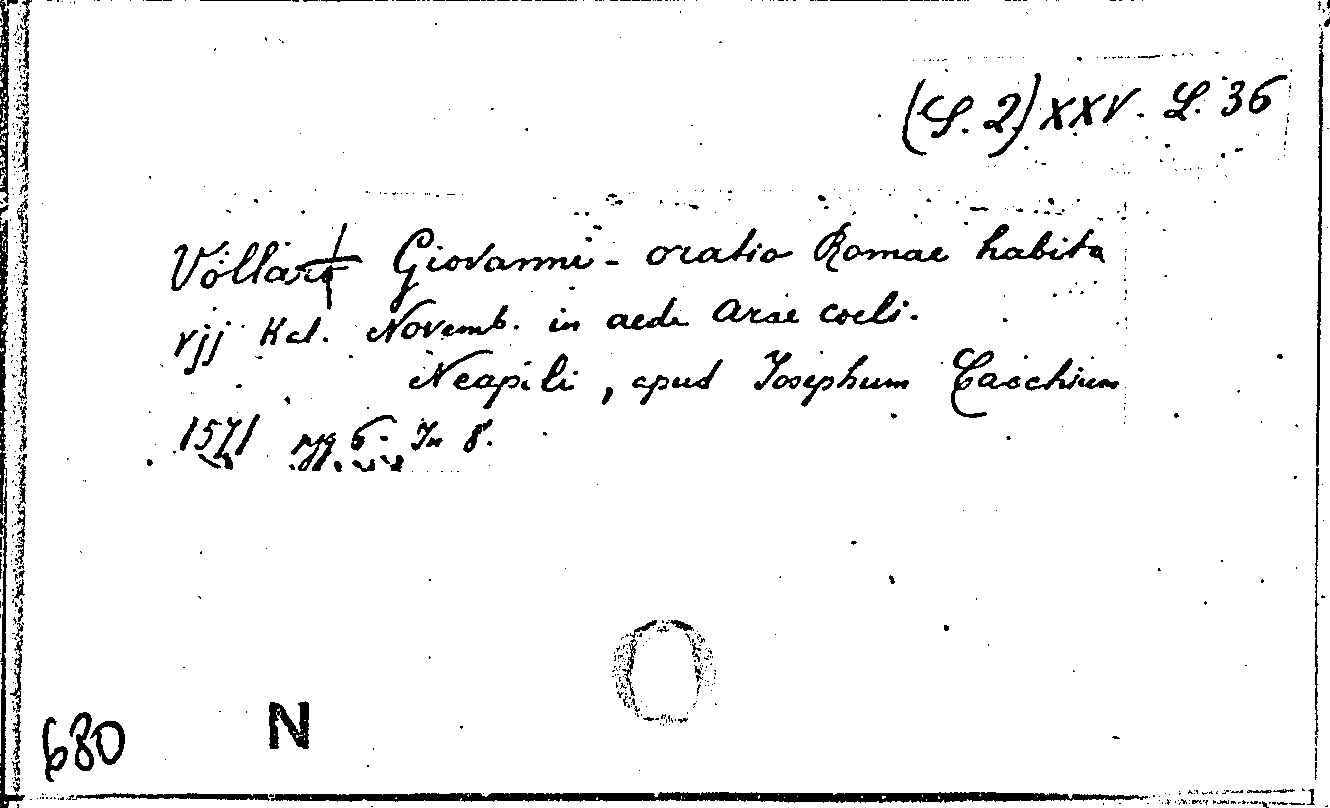 (S. 2) XXV. L. 36
Vollaro Giovanni - oratio Romae habita
vjj Kal. Novemb. in aede Arae coeli.
Neapoli, apud Iosephum Cacchium
1571 pgg 6. In 8°.
680 N